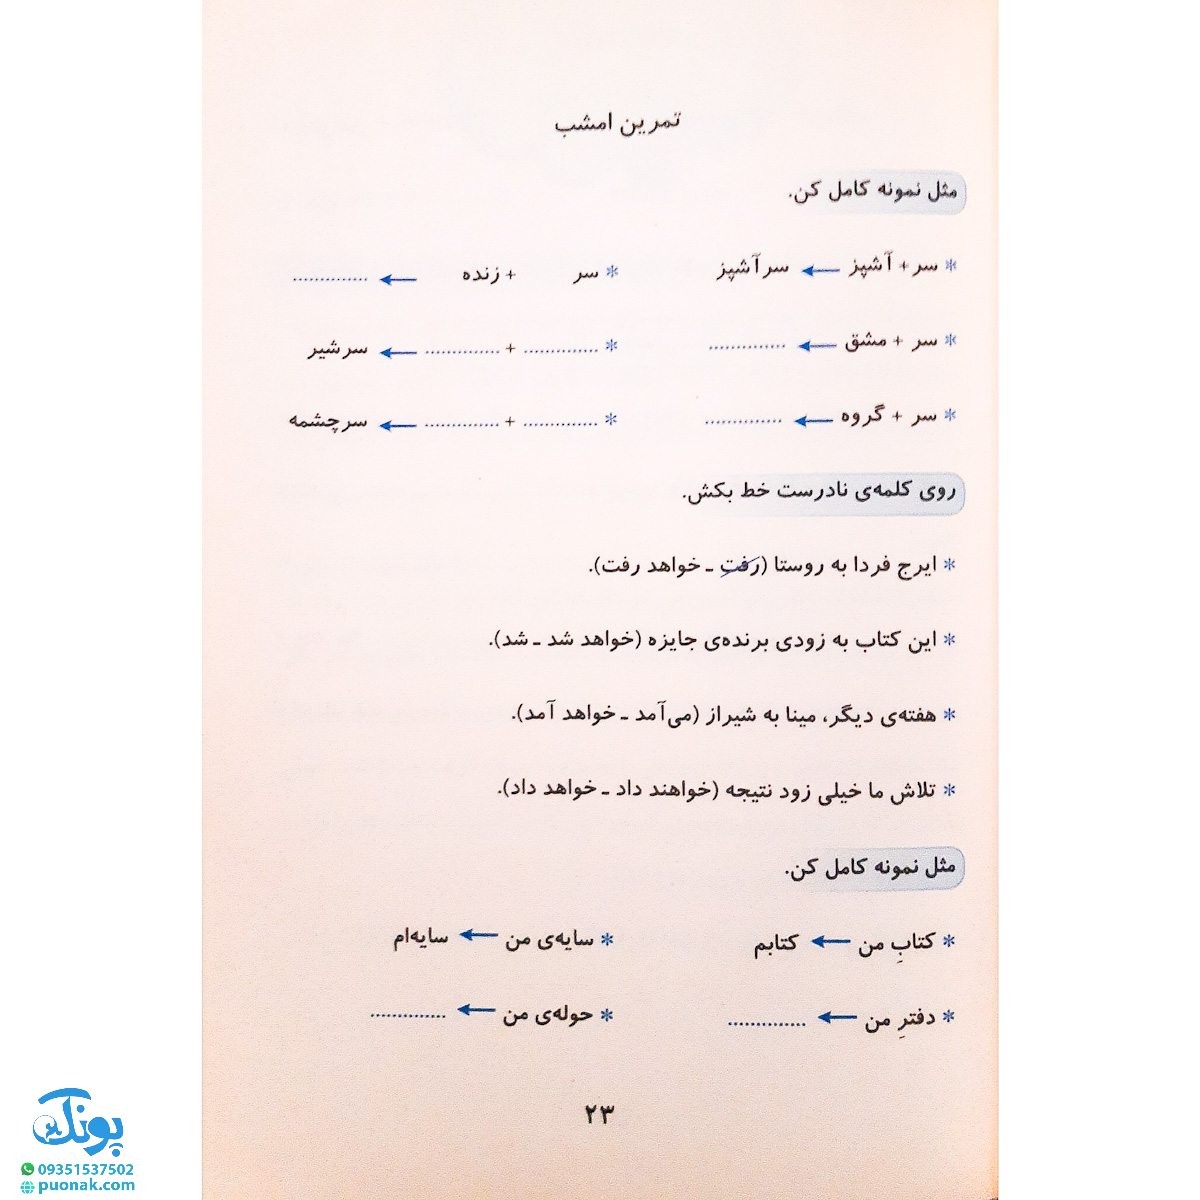 تمرین امشب
مثل نمونه کامل کن.
* سر + آشپز ← سرآشپز * سر + زنده ← ..............
* سر + مشق ← .............. * .............. + .............. ← سرشیر
* سر + گروه ← .............. * .............. + .............. ← سرچشمه
روی کلمه‌ی نادرست خط بکش.
* ایرج فردا به روستا (رفت ـ خواهد رفت).
* این کتاب به زودی برنده‌ی جایزه (خواهد شد ـ شد).
* هفته‌ی دیگر، مینا به شیراز (می‌آمد ـ خواهد آمد).
* تلاش ما خیلی زود نتیجه (خواهند داد ـ خواهد داد).
مثل نمونه کامل کن.
* کتابِ من ← کتابم * سایه‌ی من ← سایه‌ام
* دفترِ من ← .............. * حوله‌ی من ← ..............
۲۳
پونک
09351537502
puonak.com